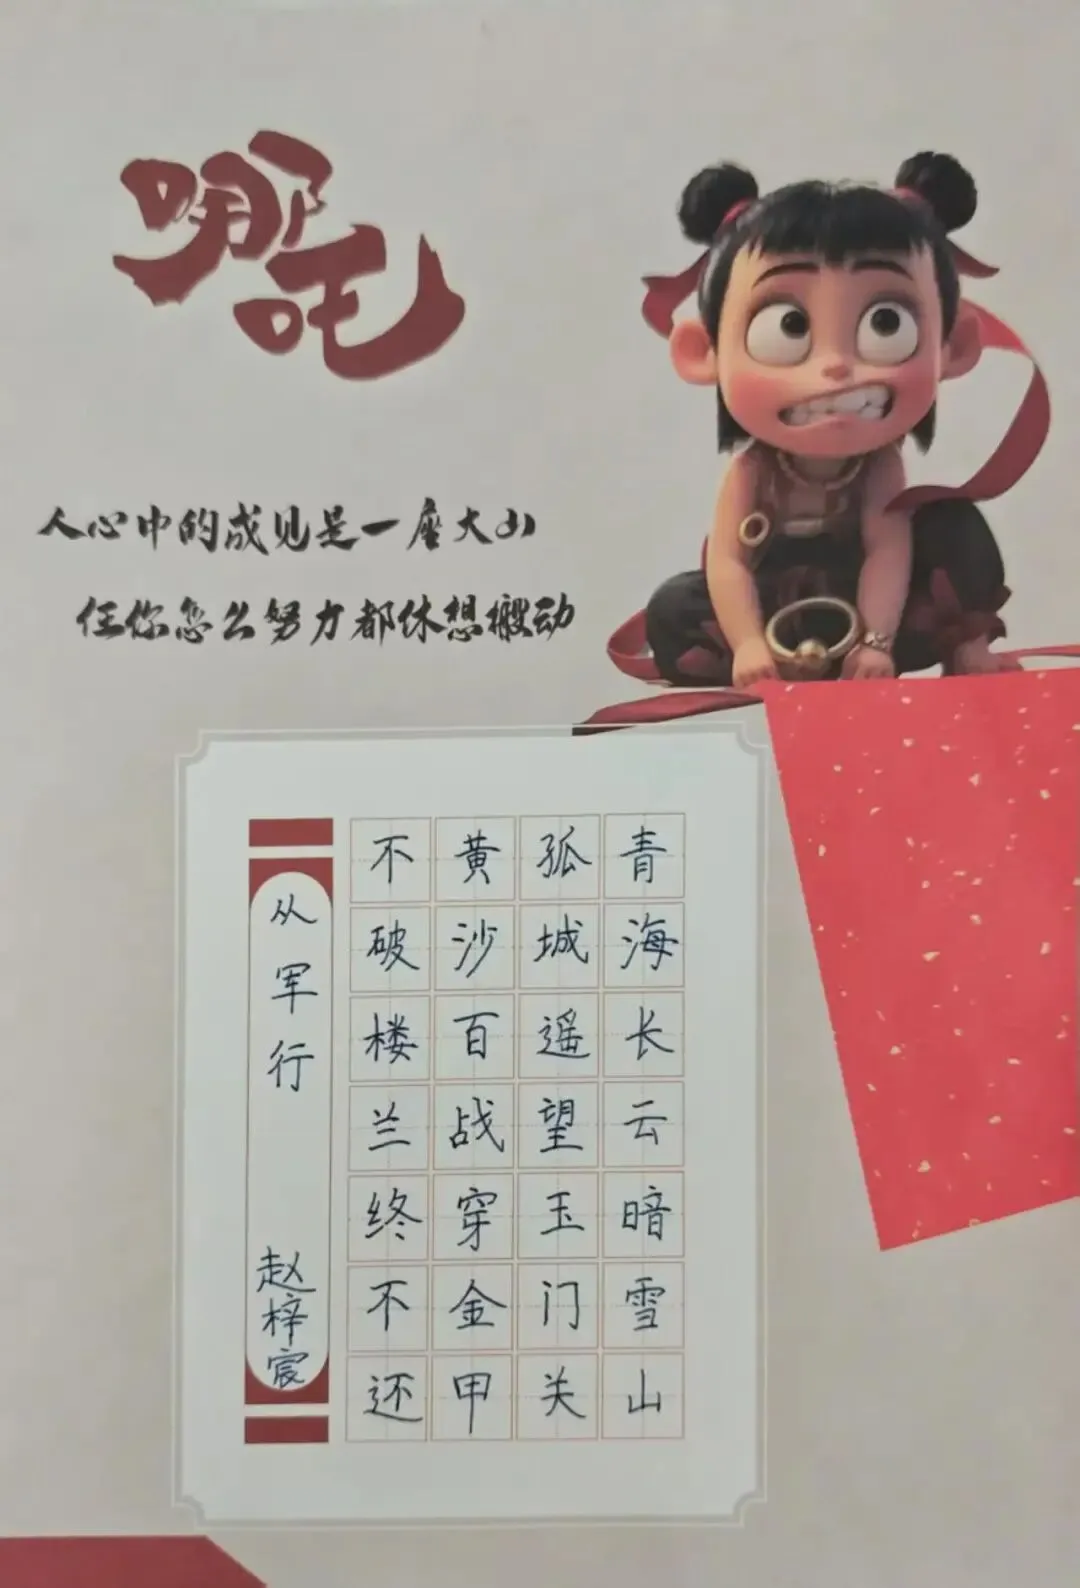 哪吒
人心中的成见是一座大山
任你怎么努力都休想搬动
青海长云暗雪山
孤城遥望玉门关
黄沙百战穿金甲
不破楼兰终不还
从军行
赵梓宸